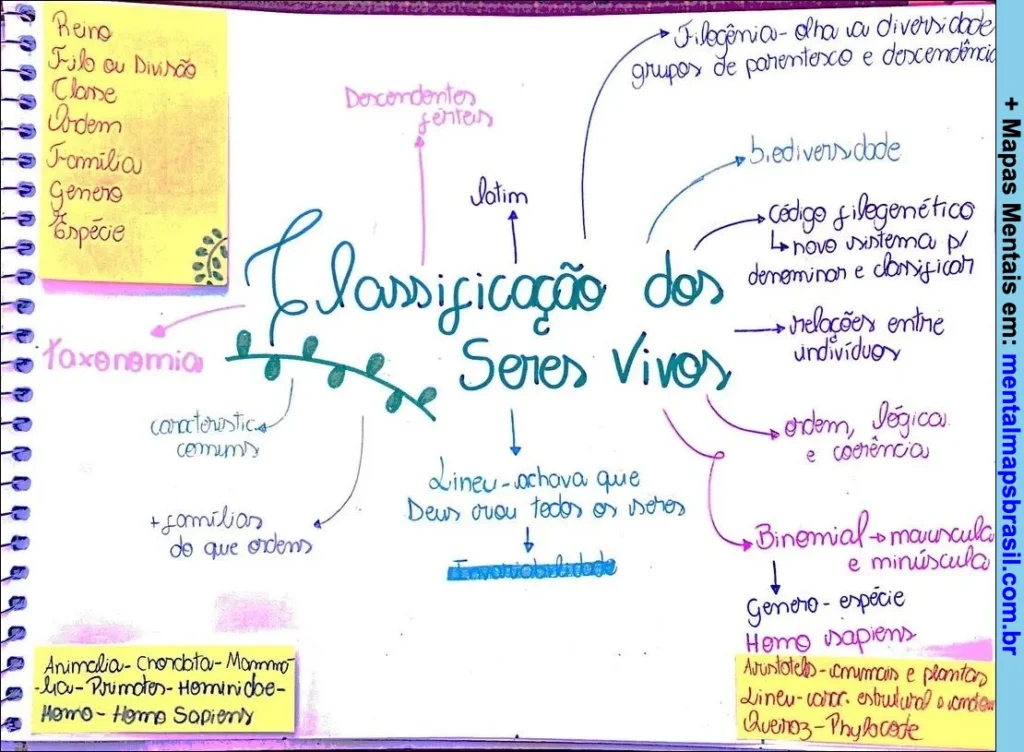 Reino
Filo ou Divisão
Classe
Ordem
Família
Genero
Espécie
Descendentes
férteis
latim
Filogênia - olha va diversidade
grupos de parentesco e descendência
biodiversidade
código filogenético
↳ novo sistema p/
denominar e classificar
relações entre
indivíduos
Classificação dos
Seres Vivos
taxonomia
característic.
comuns
+ famílias
do que ordens
Lineu - achava que
Deus criou todos os seres
Invariabilidade
ordem, lógica
e coerência
Binomial → maiuscula
e minúscula
Genero - espécie
Homo sapiens
Animalia - Chordata - Mamma
-lia - Primates - Hominidae -
Homo - Homo Sapiens
Aristoteles - animais e plantas
Lineu - carac. estrutural
Queiroz - Phylocode
+ Mapas Mentais em: mentalmapsbrasil.com.br